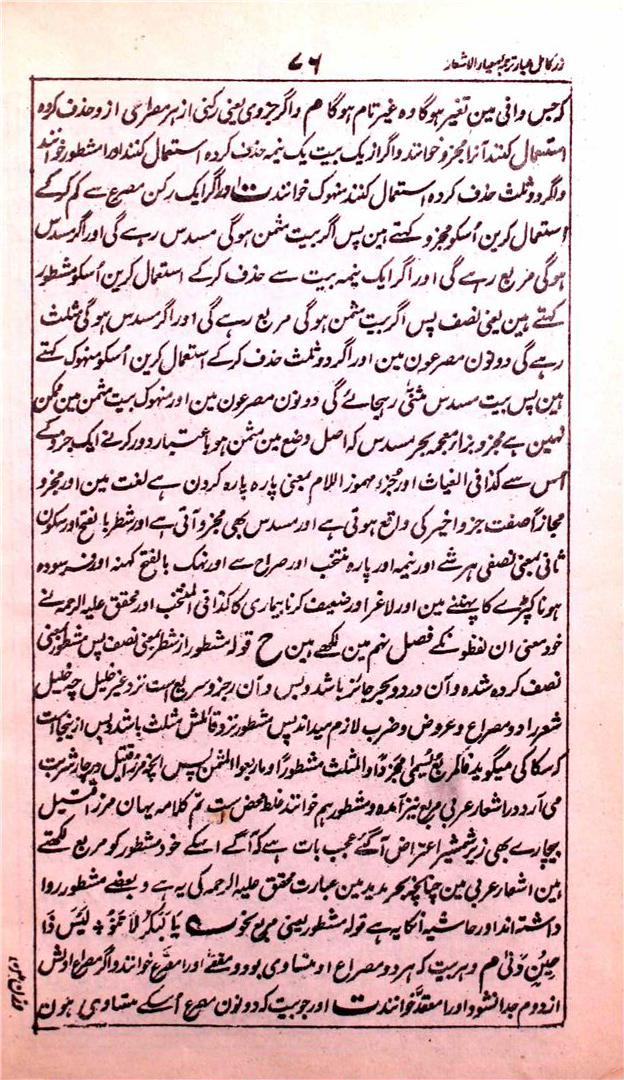 زر کامل عیار ترجمہ معیار الاشعار
۷۶
کہ جس وافی مین تغیر ہوگا وہ غیر تام ہوگا هم واگر جزوی یعنی رکنی از هر مصراعی ازو حذف کرده
استعمال کنند آنرا مجزو خوانند و اگر از یک بیت یک نیمه حذف کرده استعمال کنند اورا مشطور خوانند
و اگر دو ثلث حذف کرده استعمال کنند منہوک خوانند ت اور اگر ایک رکن مصرع سے کم کر کے
استعمال کرین اُسکو مجزو کہتے ہین پس اگر بیت مثمن ہوگی مسدس رہے گی اور اگر مسدس
ہوگی مربع رہے گی اور اگر ایک نیمہ بیت سے حذف کر کے استعمال کرین اُسکو مشطور
کہتے ہین یعنی نصف پس اگر بیت مثمن ہوگی مربع رہے گی اور اگر مسدس ہوگی مثلث
رہے گی دونون مصرعون مین اور اگر دو ثلث حذف کر کے استعمال کرین اُسکو منہوک کہتے
ہین پس بیت مسدس مثنیٰ رہجائے گی دونون مصرعون مین اور منہوک بیت مثمن مین ممکن
نہین ہے مجزو بزاء معجمہ بحر مسدس کہ اصل وضع مین مثمن ہو باعتبار دور کرنے ایک جزو کے
اُس سے کذا فی الغیاث اور جُزء مہموز اللام بمعنی پارہ پارہ کردن ہے لغت مین اور مجزو
مجازاً صفت جزو اخیر کی واقع ہوتی ہے اور مسدس بھی مجزو آتی ہے اور شطر بالفتح اور سکون
ثانی بمعنی نصفی ہر شے اور نیمہ اور پارہ منتخب اور صراح سے اور نہک بالفتح کہنہ اور فرسودہ
ہونا کپڑے کا پہننے مین اور لاغر اور ضعیف کرنا بیماری کا کذا فی المنتخب اور محقق علیہ الرحمہ نے
خود معنی ان لفظونکے فصل نہم مین لکھے ہین ح قولہ مشطور از شطر بمعنی نصف پس مشطور بمعنی
نصف کرده شده و آن در دو بحر جائز باشد و بس و آن رجز و سریع است نزد غیر خلیل چہ خلیل
شعر را دو مصراع و عروض و ضرب لازم میداند پس مشطور نزد قائلش مثلث باشد و بس از ینجاست
کہ سکاکی میگوید فالمربع یسمی مجزوًا والمثلث مشطورًا او ما ربعوا المثمن پس انچہ مرزا قتیل در چار شربت
می آرد در اشعار عربی مربع نیز آمده و مشطور هم خوانند غلط محض ست تم کلامہ یہان مرزا قتیل
بیچارے بھی زیر شمشیر اعتراض آگئے عجب بات ہے کہ آگے اسکے خود مشطور کو مربع لکھتے
ہین اشعار عربی مین چنانچہ بحر مدید مین عبارت محقق علیہ الرحمہ کی یہ ہے و بعضے مشطور روا
داشتہ اند اور حاشیہ انکا یہ ہے قولہ مشطور یعنی مربع نحو یَا لَبَکْرٍ لَا تَنُوْا ٭ لَیْسَ ذَا
حِیْنَ وَنٰی م و ہر بیت کہ ہر دو مصراع او متساوی بود و مقفے اورا مصرع خوانند و اگر مصراع اولش
از دوم جدا نشود اورا معقد خوانند ت اور جو بیت کہ دونون مصرع اُسکے متساوی ہون